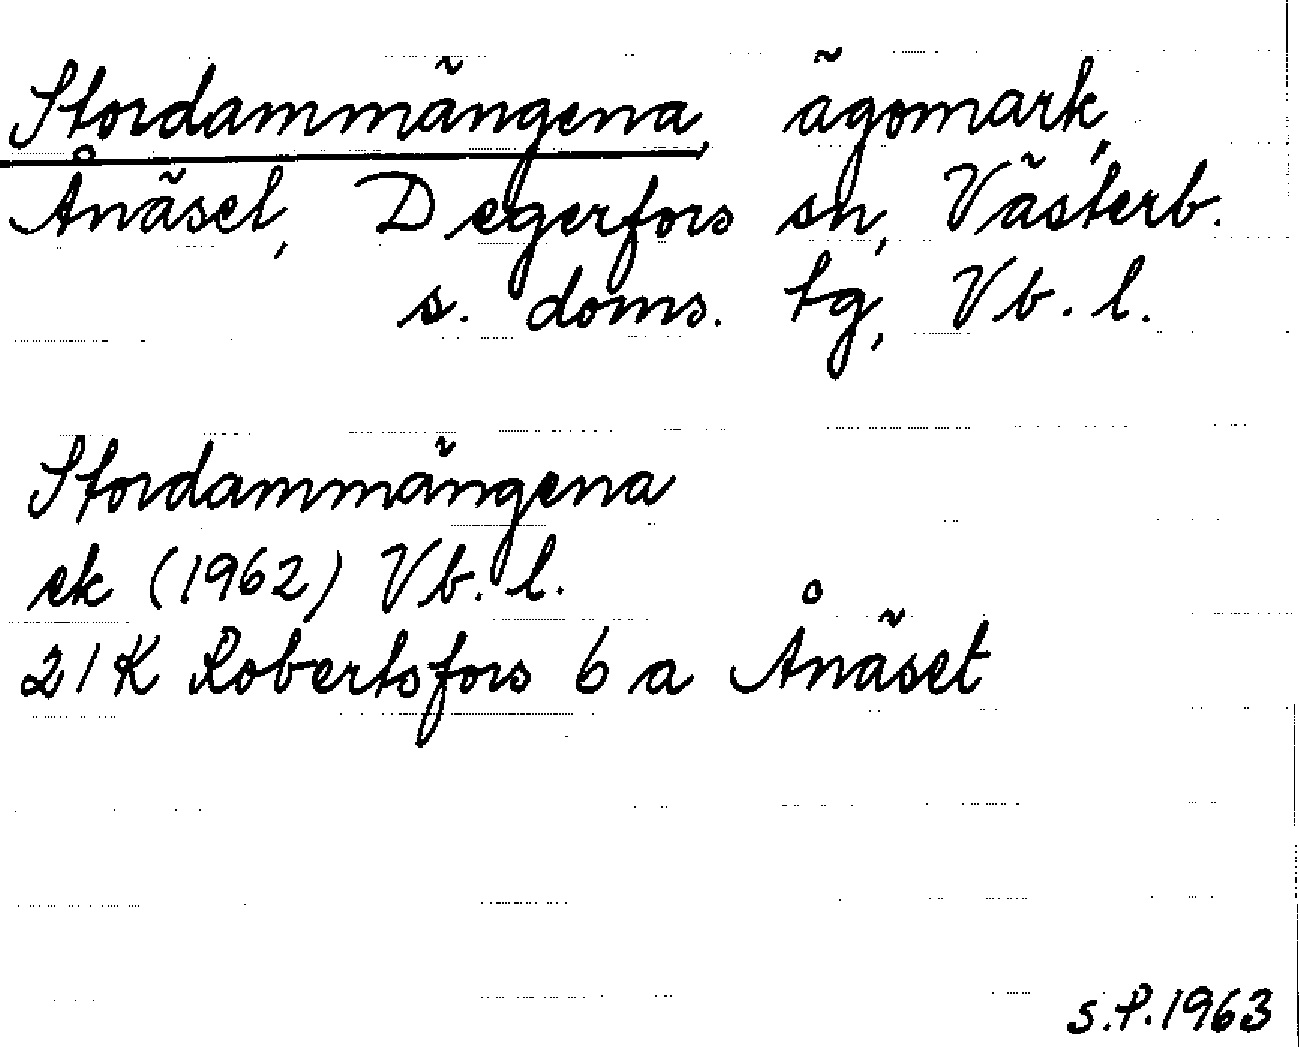 Stordammängena, ägomark,
Ånäset, Degerfors sn, Västerb.
s. doms. tg, Vb. l.
Stordammängena
ek (1962) Vb. l.
21K Robertsfors 6 a Ånäset
S.P. 1963